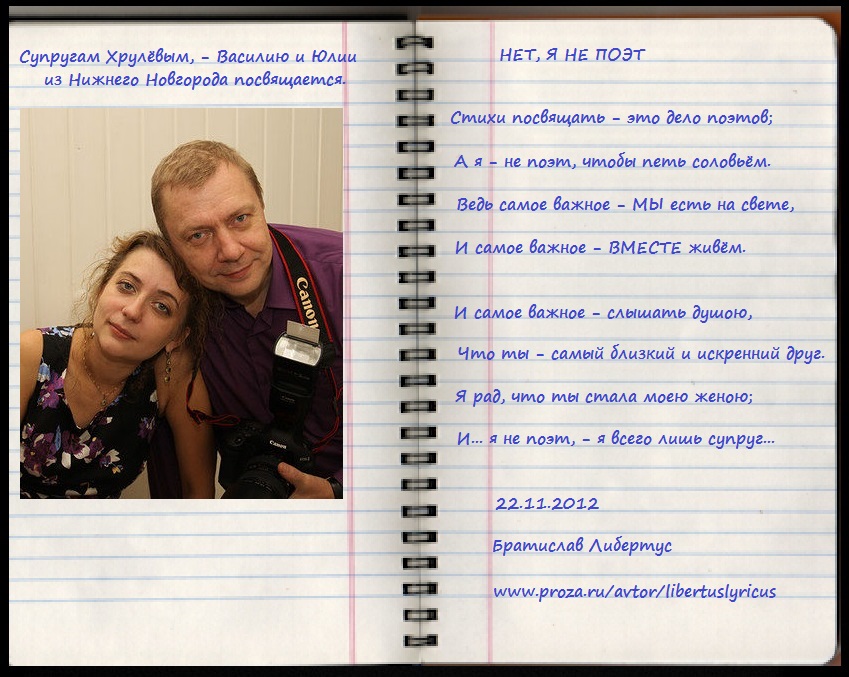 Супругам Хрулёвым, - Василию и Юлии
из Нижнего Новгорода посвящается.
Canon
Canon
НЕТ, Я НЕ ПОЭТ
Стихи посвящать - это дело поэтов;
А я - не поэт, чтобы петь соловьём.
Ведь самое важное - МЫ есть на свете,
И самое важное - ВМЕСТЕ живём.
И самое важное - слышать душою,
Что ты - самый близкий и искренний друг.
Я рад, что ты стала моею женою;
И... я не поэт, - я всего лишь супруг...
22.11.2012
Братислав Либертус
www.proza.ru/avtor/libertuslyricus